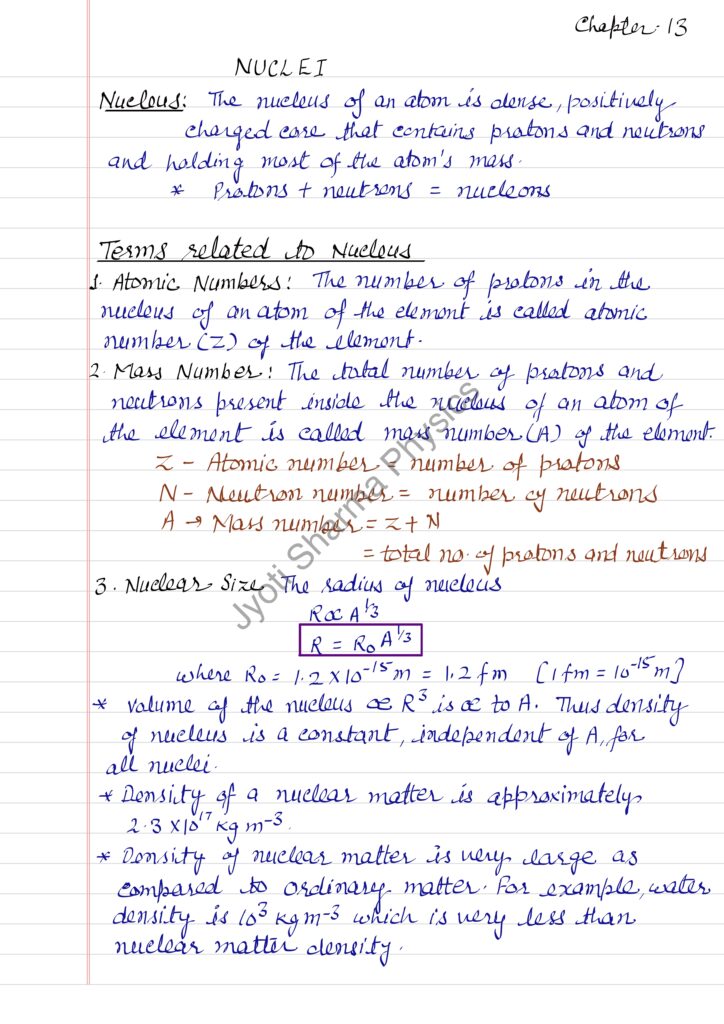 Chapter-13
NUCLEI
Nucleus: The nucleus of an atom is dense, positively
charged core that contains protons and neutrons
and holding most of the atom's mass.
* Protons + neutrons = nucleons
Terms related to Nucleus
1. Atomic Numbers: The number of protons in the
nucleus of an atom of the element is called atomic
number (Z) of the element.
2. Mass Number: The total number of protons and
neutrons present inside the nucleus of an atom of
the element is called mass number (A) of the element.
Z - Atomic number = number of protons
N - Neutron number = number of neutrons
A → Mass number = Z + N
= total no. of protons and neutrons
3. Nuclear Size The radius of nucleus
R ∝ A^1/3
R = R₀ A^1/3
where R₀ = 1.2 × 10⁻¹⁵ m = 1.2 fm [1 fm = 10⁻¹⁵ m]
* Volume of the nucleus ∝ R³ is ∝ to A. Thus density
of nucleus is a constant, independent of A, for
all nuclei.
* Density of a nuclear matter is approximately
2.3 × 10¹⁷ kg m⁻³.
* Density of nuclear matter is very large as
compared to ordinary matter. For example, water
density is 10³ kg m⁻³ which is very less than
nuclear matter density.
Jyoti Sharma Physics